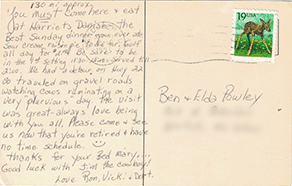 130 mi. approx.
You must come here & eat
at Harriet's Danish. The
Best Sunday dinner you ever ate
Sour cream raisin pie to die for! Golf
all day for Be sure to be
in the 1st setting served till
2:00. We had to detour, on Hwy 22
So traveled on gravel roads
watching cows ruminating on a
very pluvious day. The visit
was great - always love being
with you all. Please come & see
us now that you're retired & have
no time schedule.
Thanks for your Bed Mary.
Good luck with Jim the cowboy!
Love Ron, Vick. & Dort.
19 USA
Ben & Elda Powley